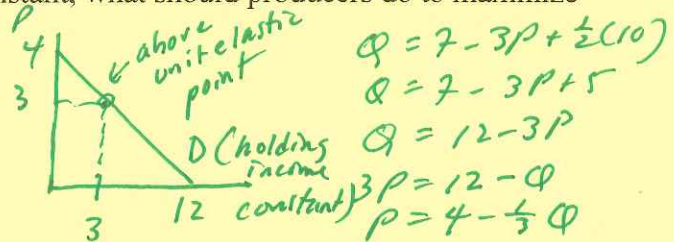 istant, what should producers do to maximize
P
4
3
above
unit elastic
point
D (holding
income
constant)
3
12
Q = 7 - 3P + ½(10)
Q = 7 - 3P + 5
Q = 12 - 3P
3P = 12 - Q
P = 4 - ⅓Q